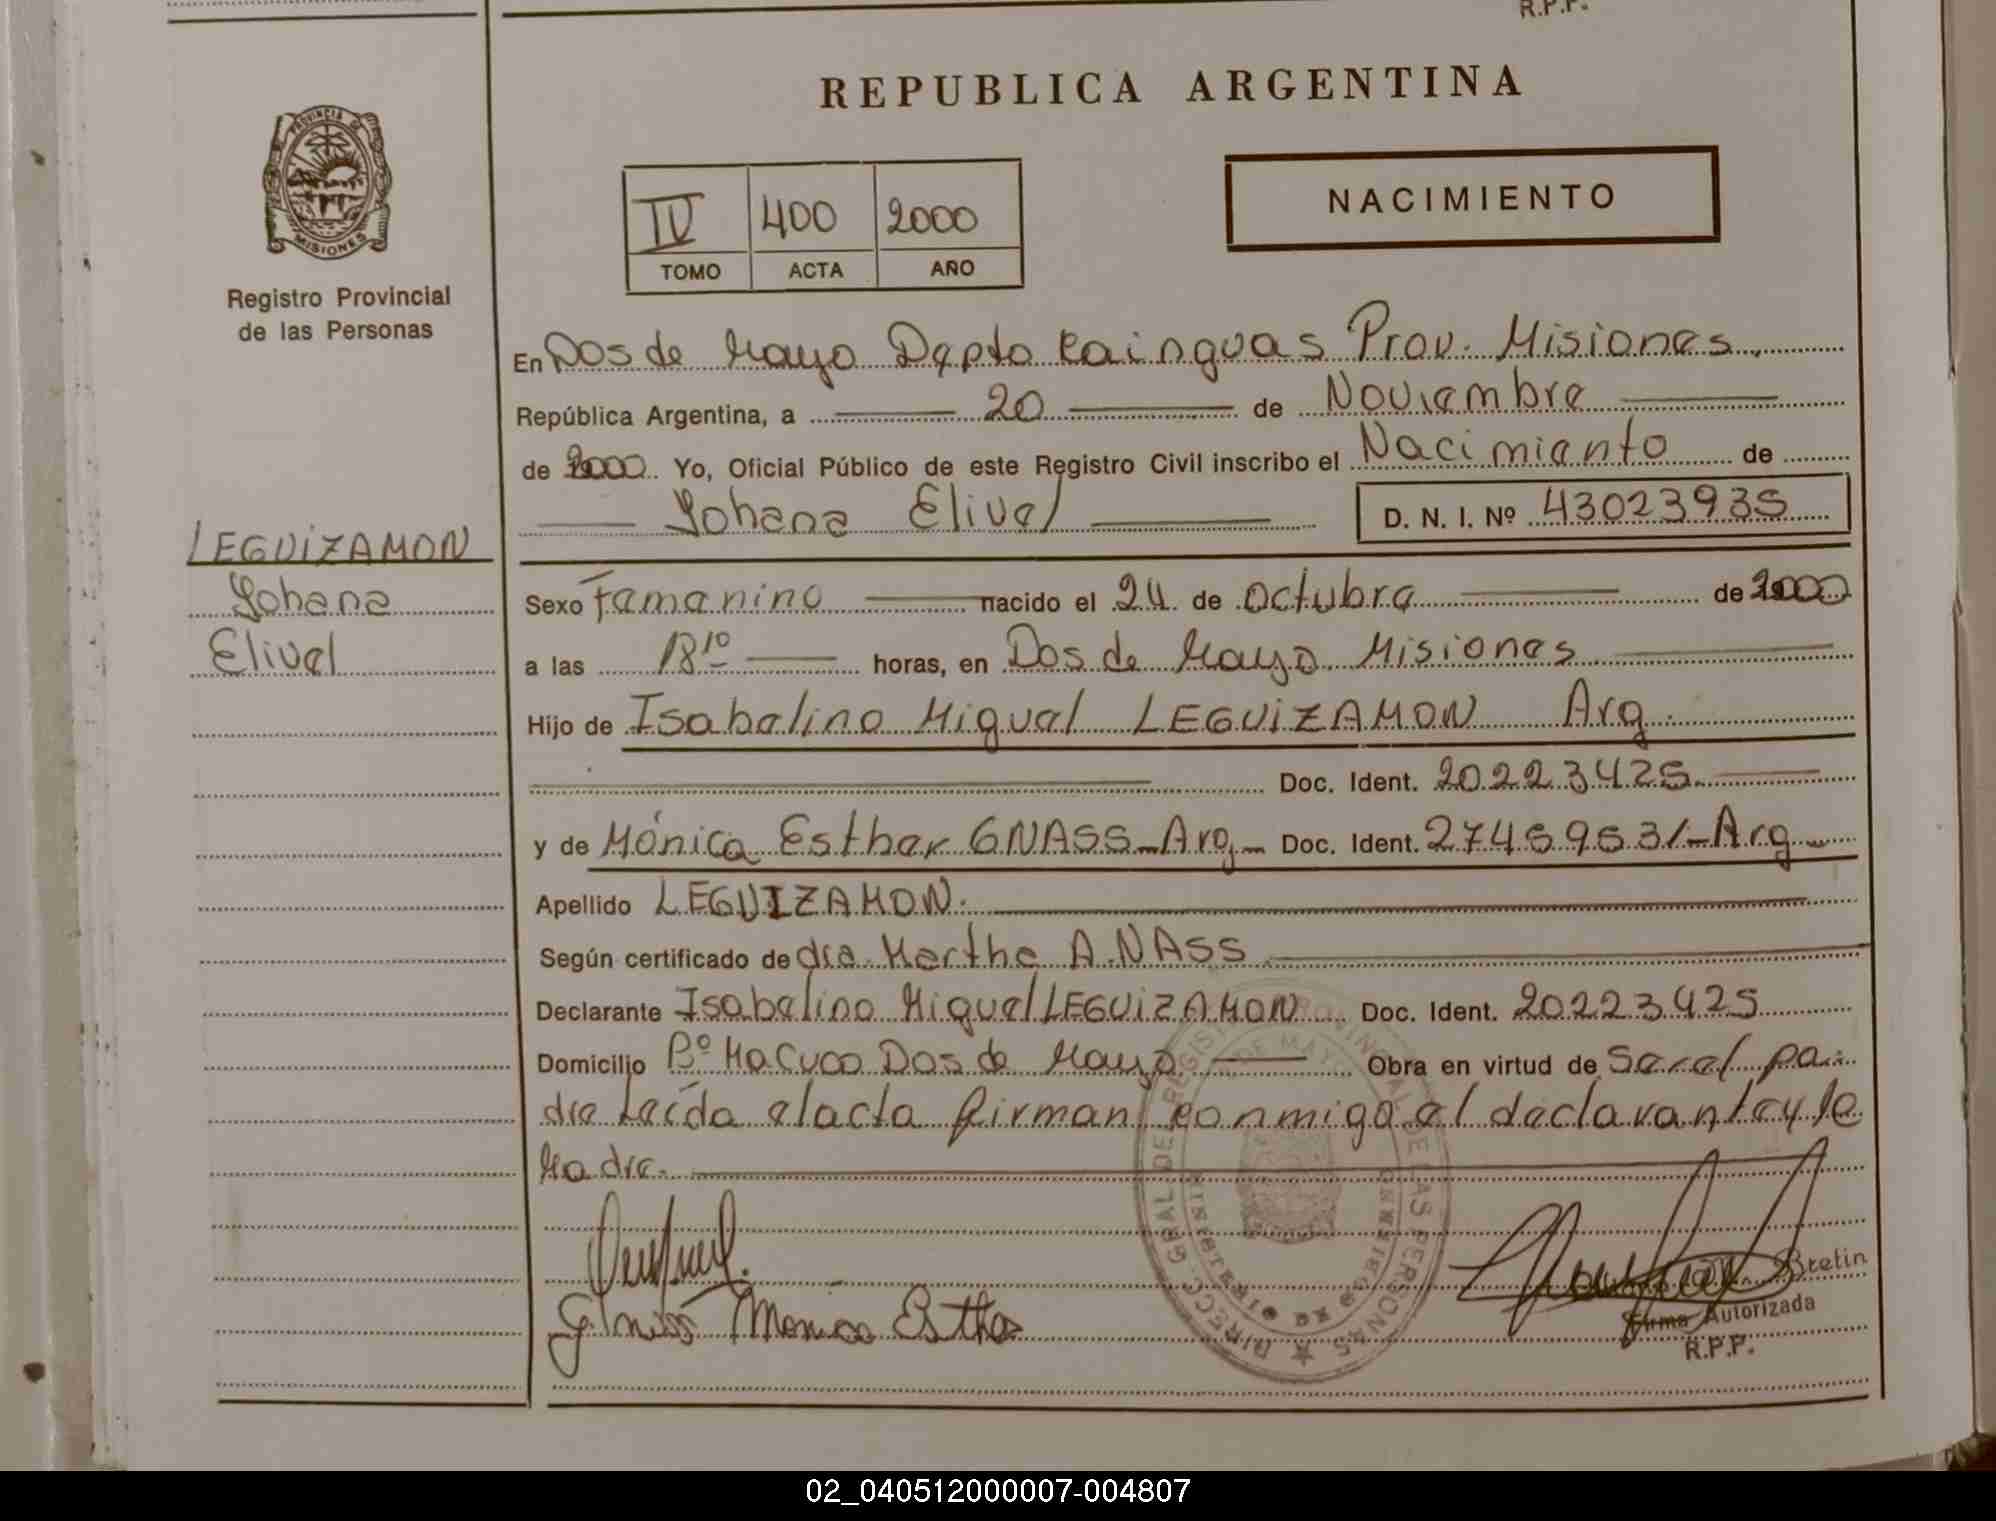 R.P.P.
REPUBLICA ARGENTINA
PROVINCIA DE
MISIONES
Registro Provincial
de las Personas
IV 400 2000
TOMO ACTA AÑO
NACIMIENTO
En Dos de Mayo Depto Cainguas Prov. Misiones
República Argentina, a 20 de Noviembre
de 2000 Yo, Oficial Público de este Registro Civil inscribo el Nacimiento de
Yohana Elivel D. N. I. Nº 43023935
LEGUIZAMON
Yohana
Elivel
Sexo Femenino nacido el 24 de octubre de 2000
a las 18¹⁰ horas, en Dos de Mayo Misiones
Hijo de Isabelino Miguel LEGUIZAMON Arg.
Doc. Ident. 20223425
y de Mónica Esther GNASS - Arg - Doc. Ident. 27459531 - Arg
Apellido LEGUIZAMON.
Según certificado de dra Martha A. NASS
Declarante Isabelino Miguel LEGUIZAMON Doc. Ident. 20223425
Domicilio Bº Macuco Dos de Mayo Obra en virtud de Ser el pa-
dre Leída el acta firman conmigo el declarante y la
Madre.
Gnass Monica Esther
Bretin
Firma Autorizada
R.P.P.
DIRECC. GRAL DE REGISTRO PROVINCIAL DE LAS PERSONAS
2 DE MAYO
MINISTERIO DE GOBIERNO
02_040512000007-004807